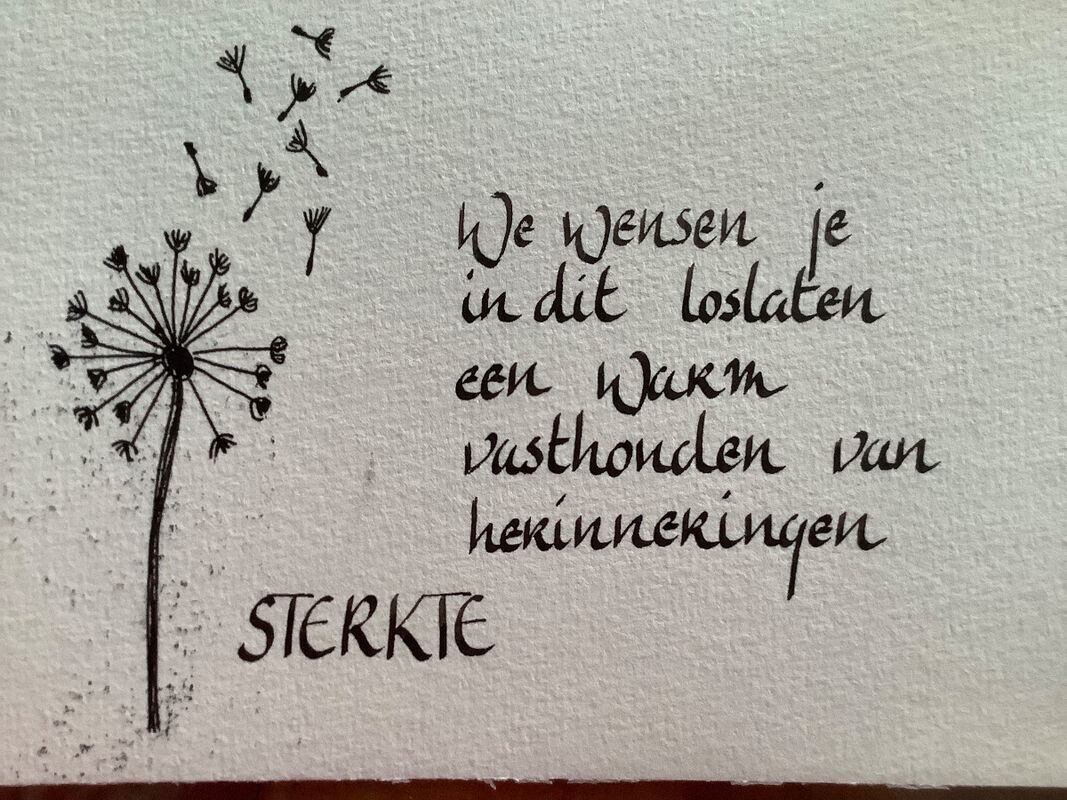 We wensen je
in dit loslaten
een warm
vasthouden van
herinneringen
STERKTE